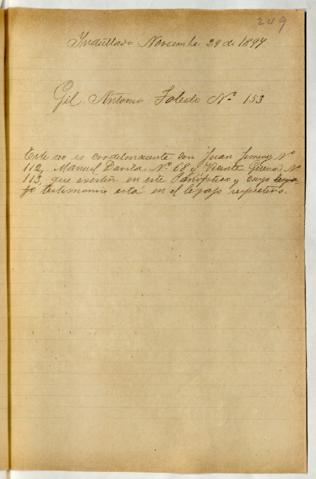 249
Indultado Noviembre 29 de 1897
Gil Antonio Toledo Nº 153
Este reo es condelincuente con Juan Nº
112, Manuel Davila Nº 68 y Vicente Nº
113, que existen en este Panóptico y cuyo
testimonio está en el legajo respectivo.